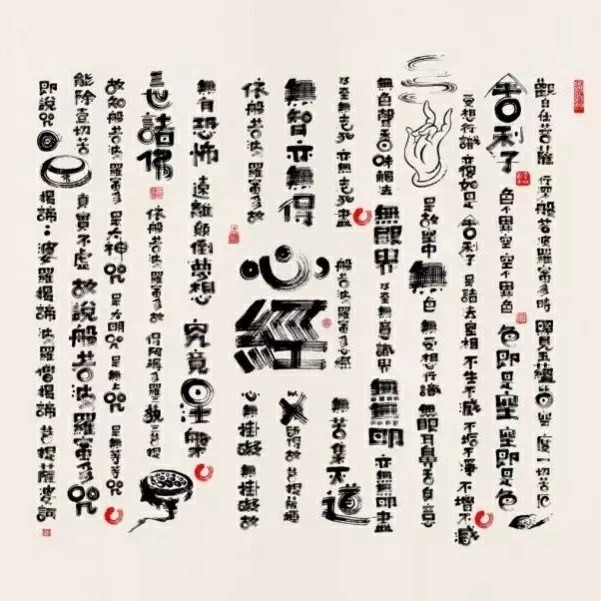 觀自在菩薩 行深般若波羅蜜多時 照見五蘊皆空 度一切苦厄
舍利子 色不異空 空不異色 色即是空 空即是色
受想行識 亦復如是 舍利子 是諸法空相 不生不滅 不垢不淨 不增不減
是故空中無色 無受想行識 無眼耳鼻舌身意
無色聲香味觸法 無眼界 乃至無意識界 無無明 亦無無明盡
乃至無老死 亦無老死盡
無苦集滅道
無智亦無得
以所得故 菩提薩埵
般若波羅蜜多心經
心經
依般若波羅蜜多故
心無掛礙 無掛礙故
無有恐怖 遠離顛倒夢想 究竟涅槃
三世諸佛 依般若波羅蜜多故 得阿耨多羅三藐三菩提
故知般若波羅蜜多 是大神咒 是大明咒 是無上咒 是無等等咒
能除壹切苦 真實不虛 故說般若波羅蜜多咒
即說咒曰 揭諦: 婆羅揭諦 波羅僧揭諦 菩提薩婆訶